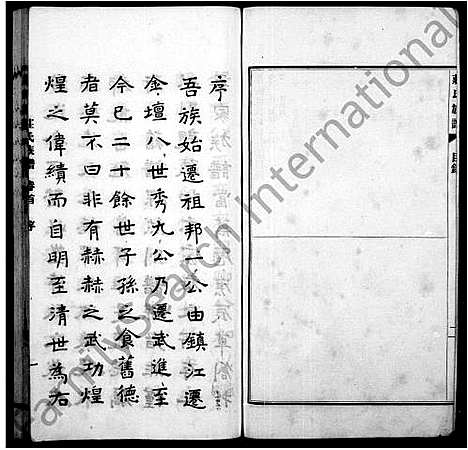 莊氏族譜 目錄
序
吾族始遷祖邦一公由鎮江遷
金壇八世秀九公乃遷武進至
今已二十餘世子孫之食舊德
者莫不曰非有赫赫之武功煌
煌之偉績而自明至清世爲右
莊氏族譜 卷首 序
一
Family Search International